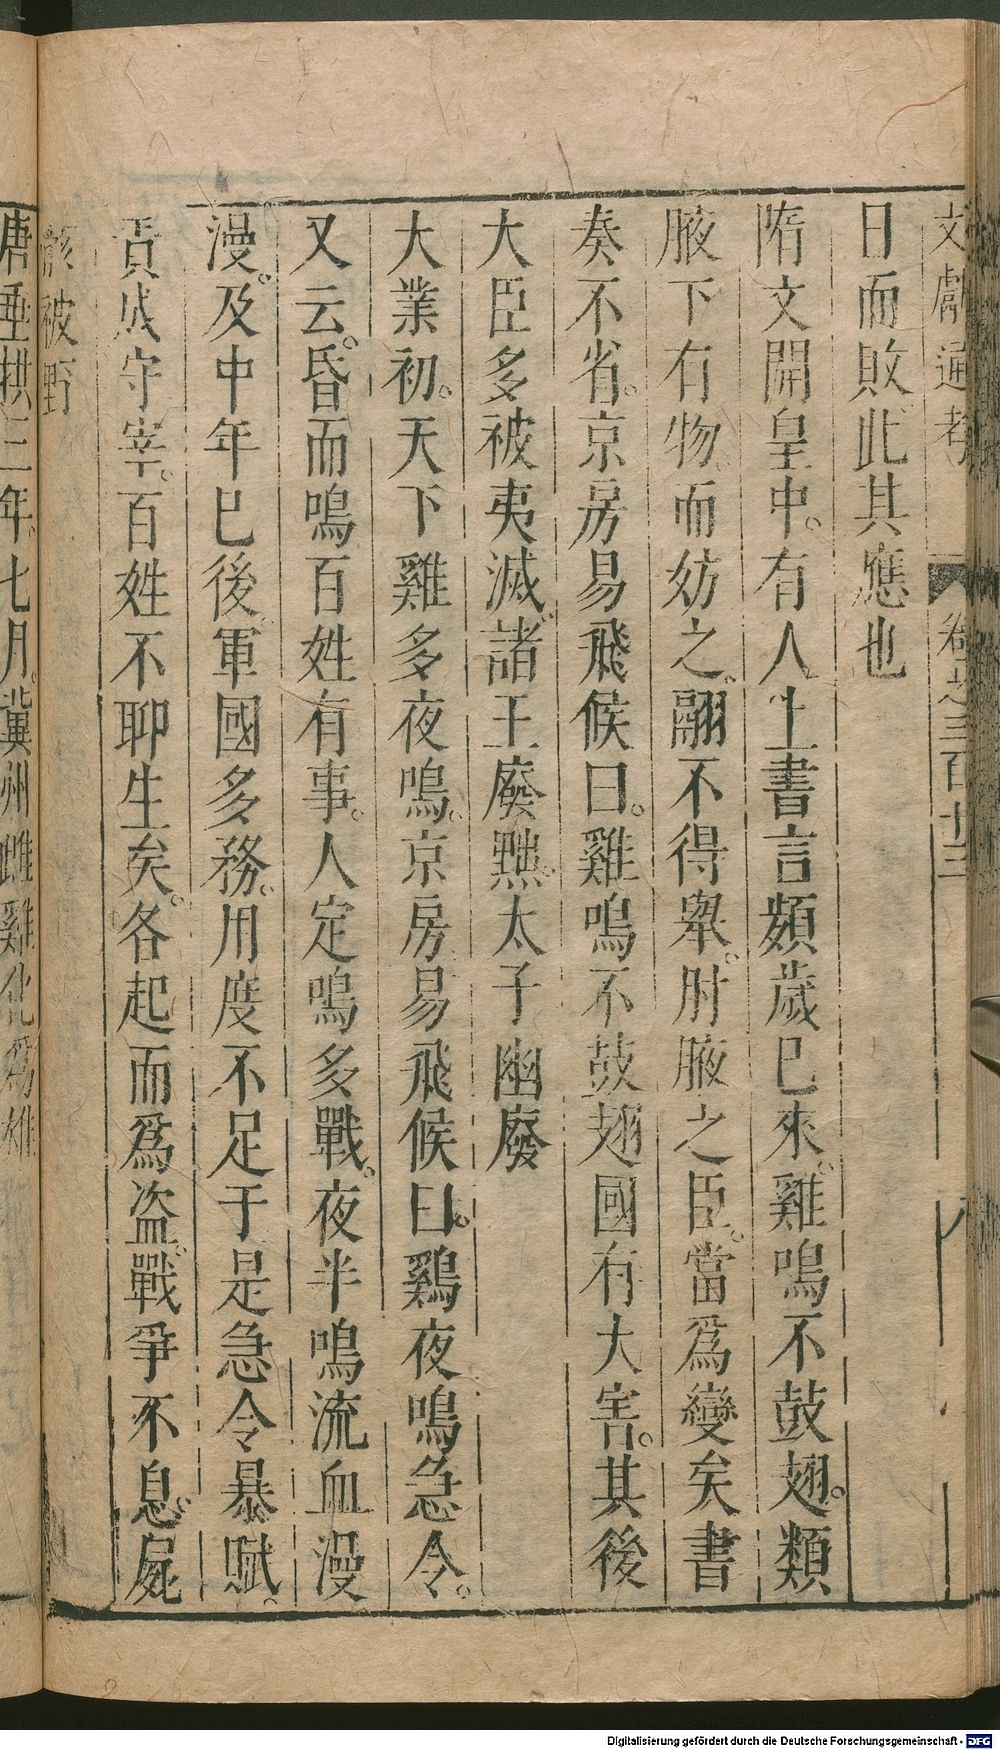 文獻通考 卷之三百十三 八
日而敗此其應也
隋文開皇中。有人上書言頻歲已來。雞鳴不鼓翅。類
腋下有物。而妨之。翮不得舉。肘腋之臣。當爲變矣書
奏不省。京房易飛候曰。雞鳴不鼓翅國有大害。其後
大臣多被夷滅。諸王廢黜。太子幽廢
大業初。天下雞多夜鳴。京房易飛候曰。鷄夜鳴急令。
又云。昏而鳴百姓有事。人定鳴多戰。夜半鳴流血漫
漫。及中年已後。軍國多務。用度不足于是急令暴賦。
責成守宰。百姓不聊生矣。各起而爲盜。戰爭不息。屍
骸被野
唐垂拱三年。七月。冀州雌雞化爲雄
Digitalisierung gefördert durch die Deutsche Forschungsgemeinschaft - DFG